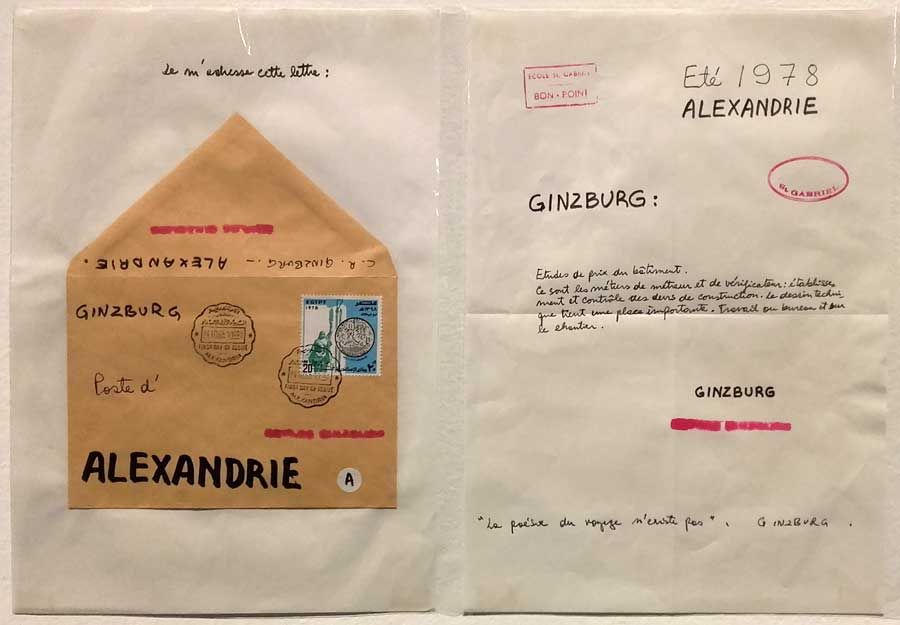 Je m'adresse cette lettre :
C. R. GINZBURG. — ALEXANDRIE.
GINZBURG
FIRST DAY OF ISSUE
ALEXANDRIA
EGYPT
1978
20
FIRST DAY OF ISSUE
ALEXANDRIA
Poste d'
ALEXANDRIE
A
ECOLE St. GABRIEL
BON - POINT
Eté 1978
ALEXANDRIE
St. GABRIEL
GINZBURG :
Etudes de prix du bâtiment.
Ce sont les métiers de métreur et de vérificateur : établisse
ment et contrôle des devis de construction. Le dessin techni
que tient une place importante. Travail au bureau et sur
le chantier.
GINZBURG
"La poésie du voyage n'existe pas". GINZBURG .